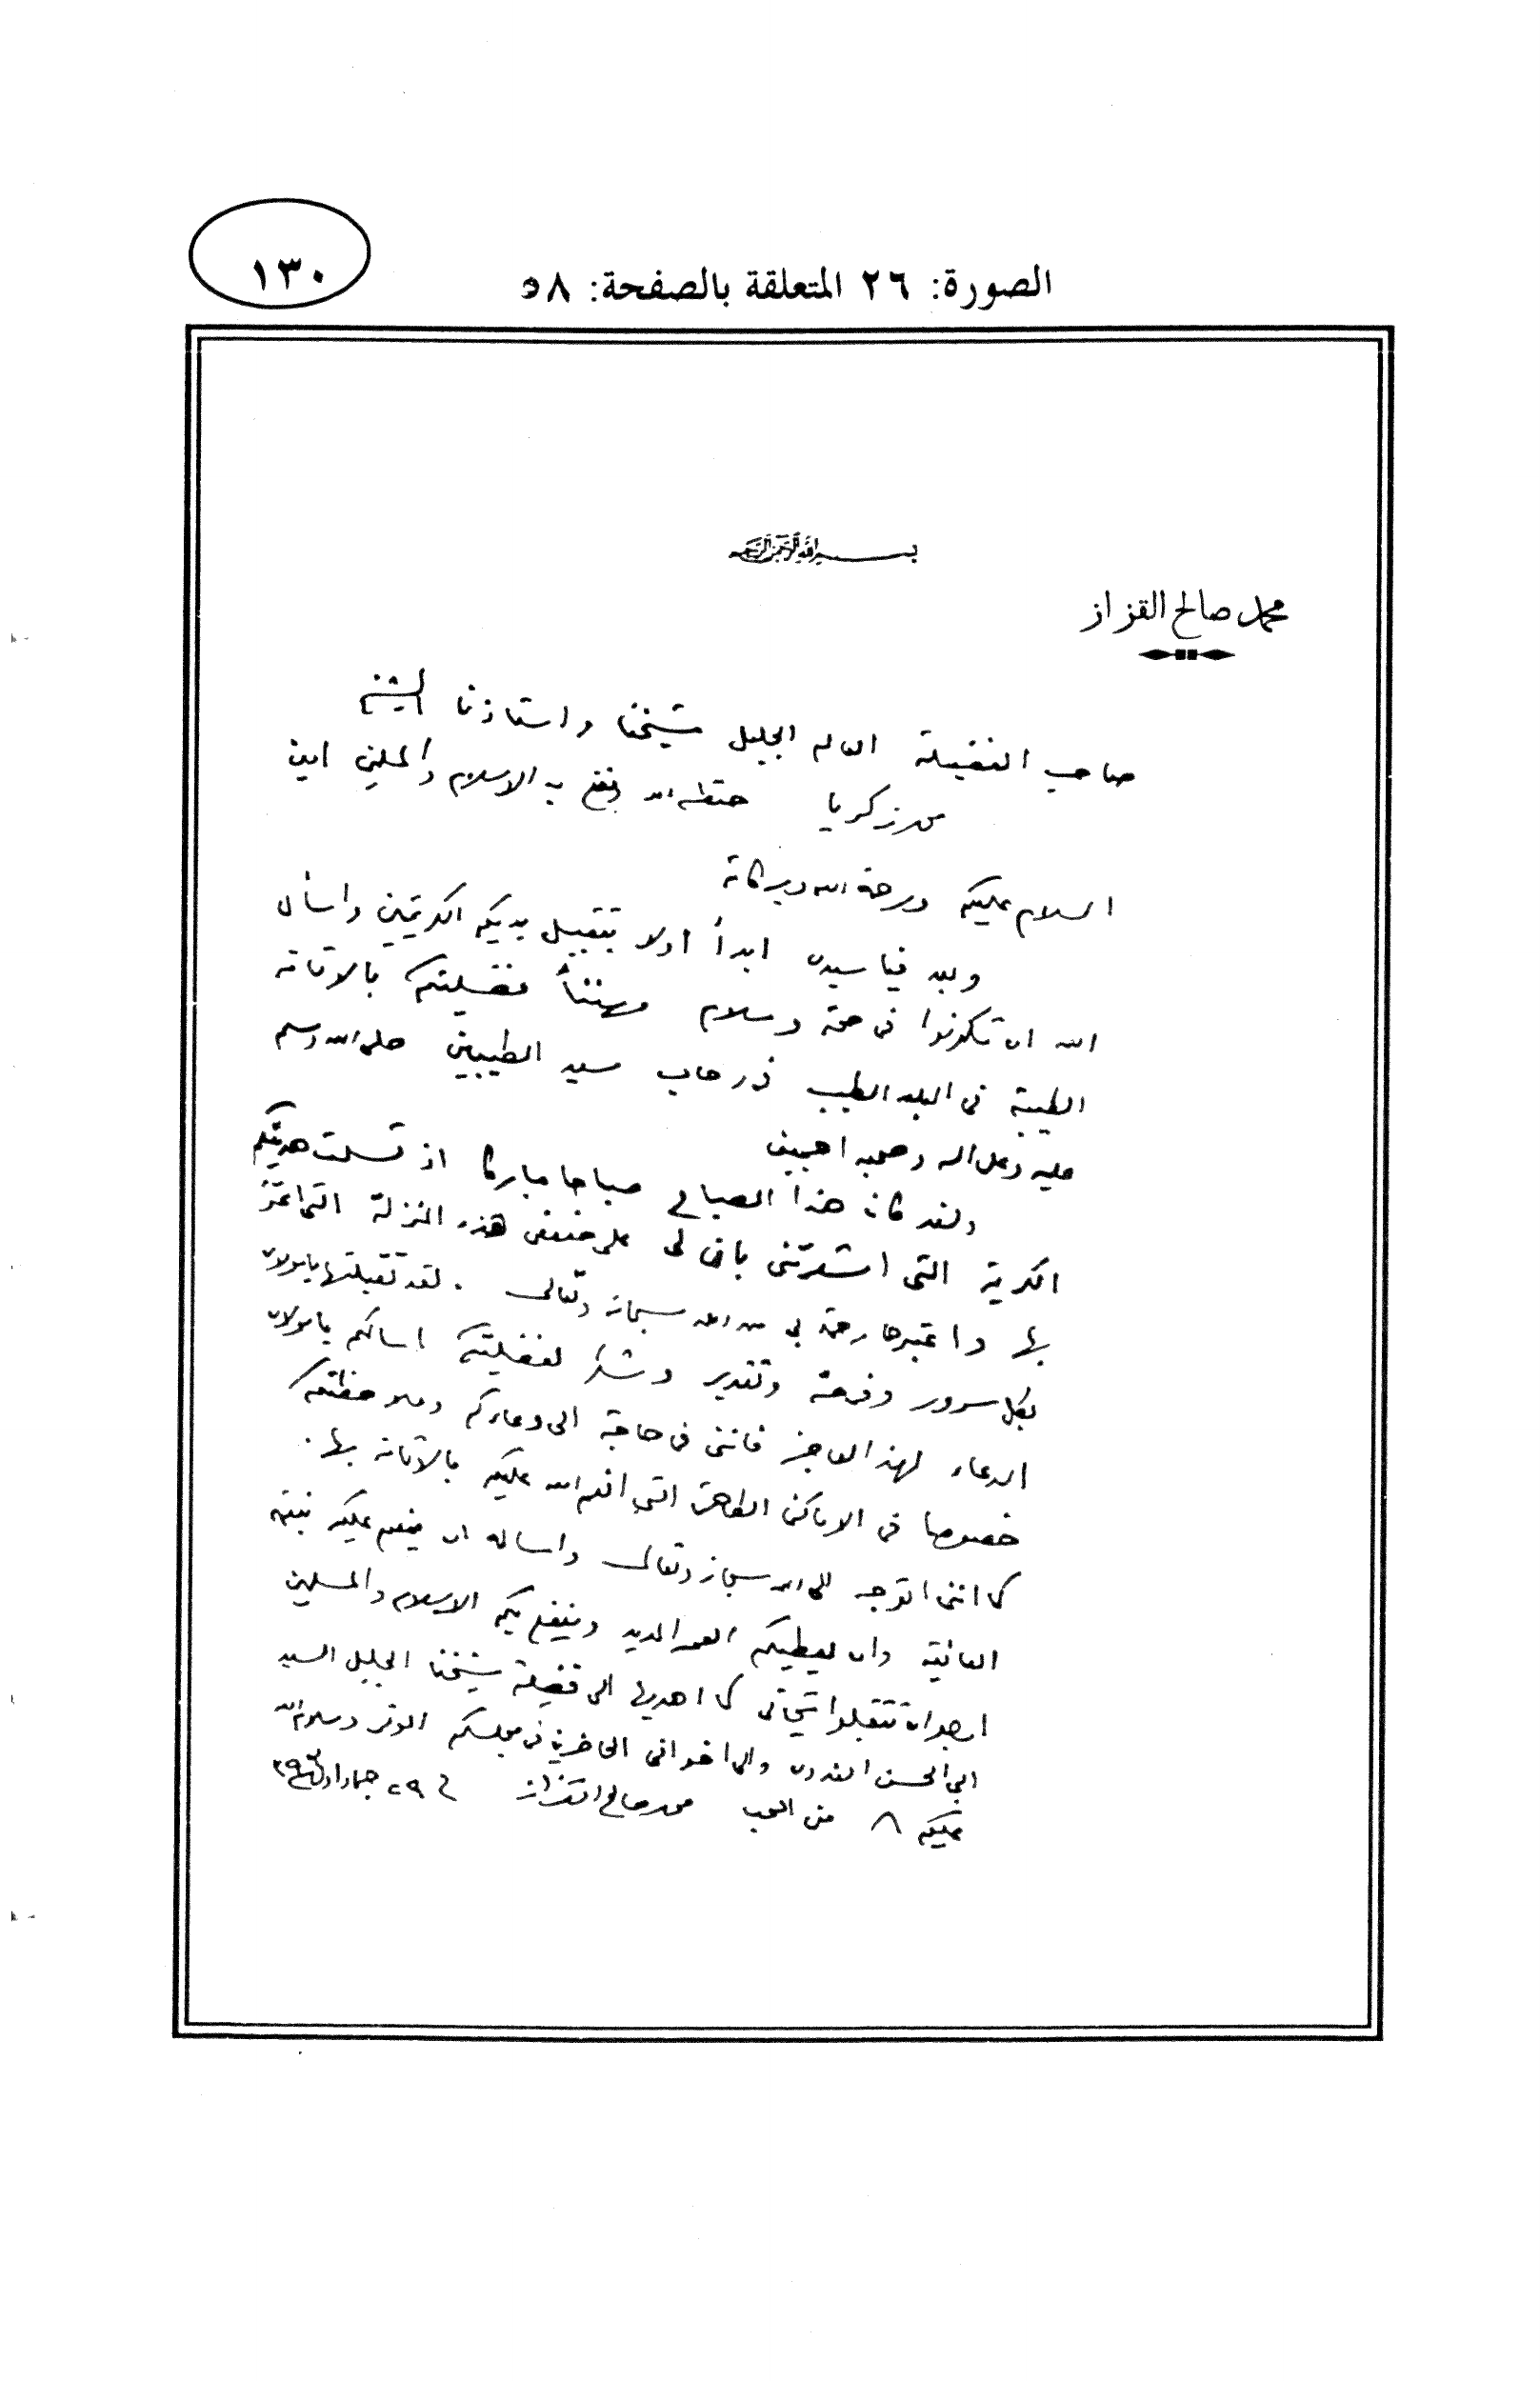 ١٣٠
الصورة: ٢٦ المتعلقة بالصفحة: ٥٨
بسم الله الرحمن الرحيم
محمد صالح القزاز
صاحب الفضيلة العالم الجليل شيخنا واستاذنا الشيخ
محمد زكريا حفظه الله ونفع به الاسلام والمسلمين امين
السلام عليكم ورحمة الله وبركاته
وبعد فيا سيدى ابدأ اولا بتقبيل يديكم الكريمتين واسأل
الله ان تكونوا فى صحة وسلام مهنئاً فضيلتكم بالاقامة
الطيبة فى البلد الطيب فى رحاب سيد الطيبين صلى الله وسلم
عليه وعلى اله وصحبه اجمعين
ولقد كان هذا الصباح صباحا مباركا اذ تسلمت هديتكم
الكريمة التى اشعرتنى بان لى على ضعفى هذه المنزلة التى اعتز
بها واعتبرها رحمة بى من الله سبحانه وتعالى . لقد تقبلتها يامولاى
بكل سرور وفرحة وتقدير وشكر لفضيلتكم اسالكم يامولاى
الدعاء لهذ العاجز فاننى فى حاجة الى دعاءكم وملاحظتكم
خصوصا فى الاماكن الطاهرة التى انعم الله عليكم بالاقامة بها .
كما اننى اتوجه الى الله سبحانه وتعالى واساله ان ينعم عليكم بنعمة
العافية وان يعطيكم العمر المديد وينفع بكم الاسلام والمسلمين
ارجوان تتقبلوا تحياتى كما اهديها الى فضيلة شيخنا الجليل السيد
ابى الحسن الندوى والى اخوانى الحاضرين فى مجلسكم الموقر وسلام الله
عليكم ٨ من المحب محمد صالح القزاز فى ٢٩ جماد اول ٣٩٣